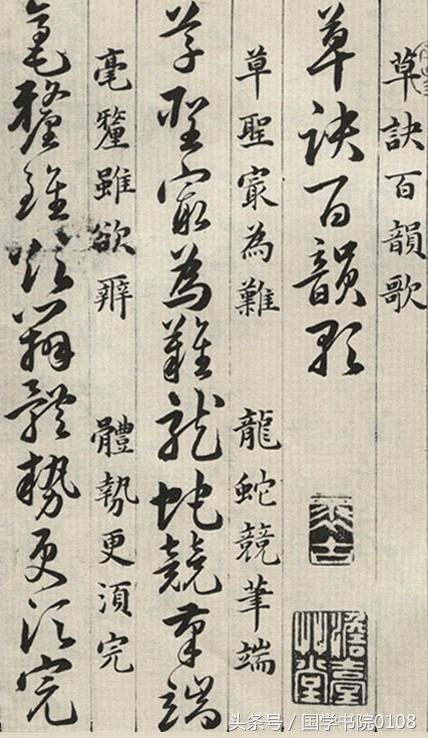 草訣百韻歌
草訣百韻歌
草聖冣為難 龍蛇競筆端
草聖冣為難龍蛇競筆端
毫釐雖欲辨 體勢更須完
毫釐雖欲辨體勢更須完
头条号 / 国学书院0108